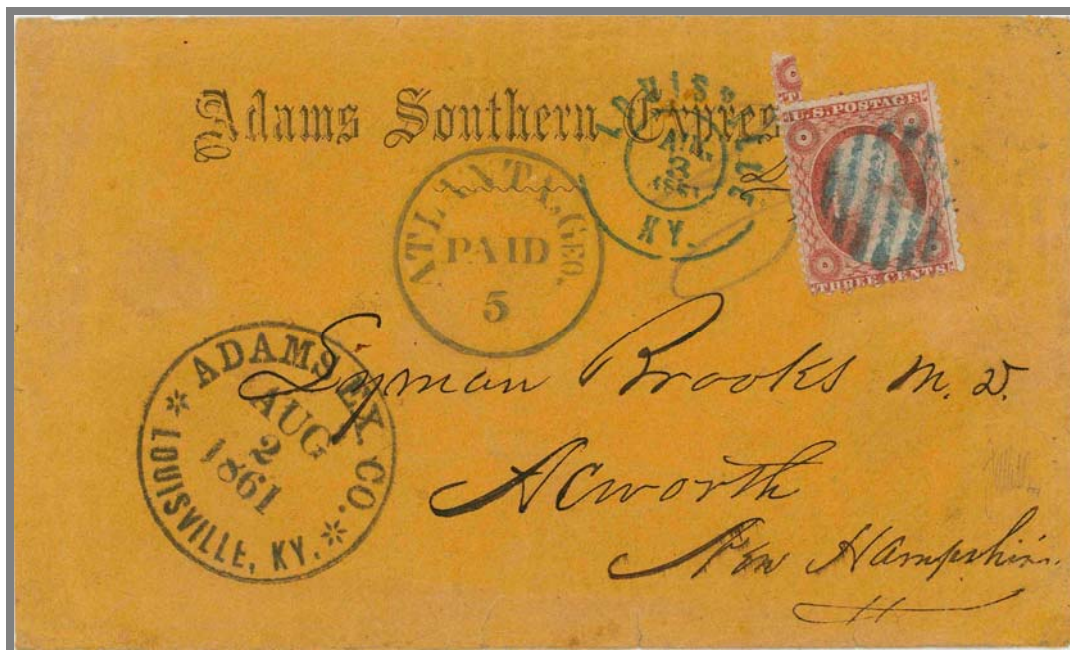 Adams Southern Expres
LOUISVILLE
AUG.
2
1861
KY.
U.S. POSTAGE
THREE CENTS
ATLANTA, GEO.
PAID
5
ADAMS EX. CO.
AUG
2
1861
LOUISVILLE, KY.
Lyman Brooks M.D.
Acworth
New Hampshire.